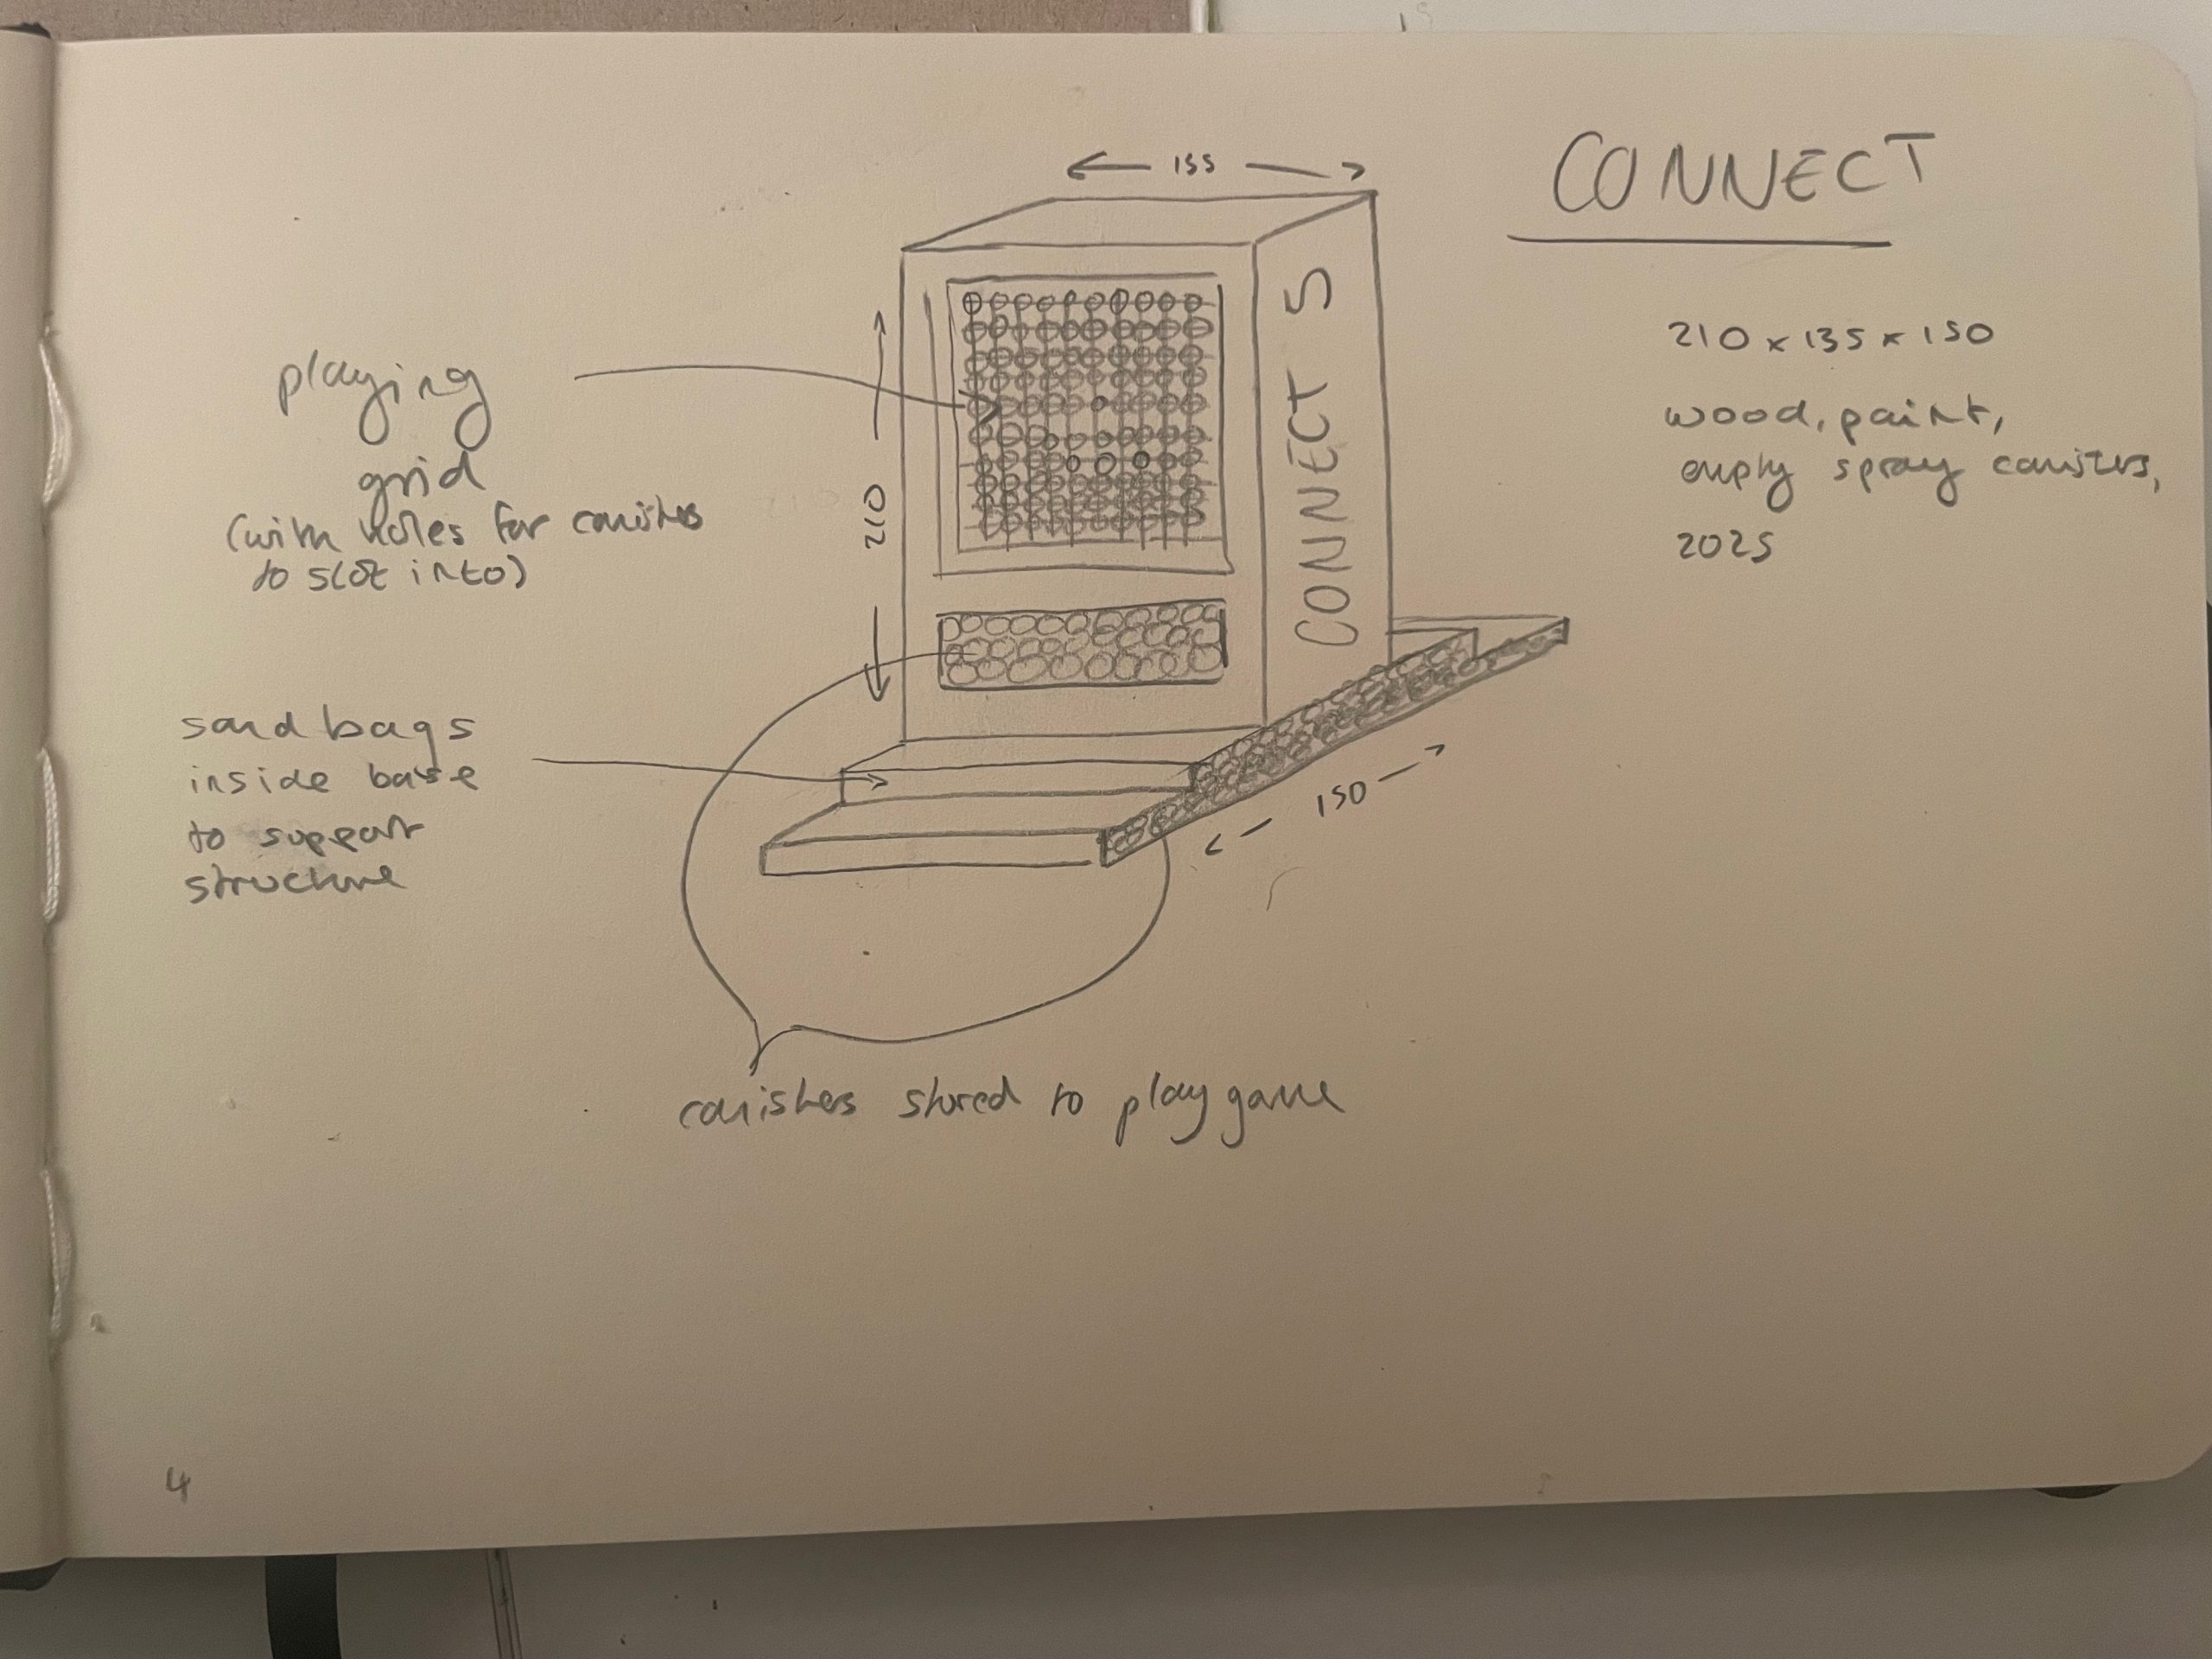 CONNECT
210 x 135 x 150
wood, paint,
empty spray canisters,
2025
155
210
CONNECT 5
150
playing
grid
(with holes for canisters
to slot into)
sand bags
inside base
to support
structure
canisters stored to play game
4